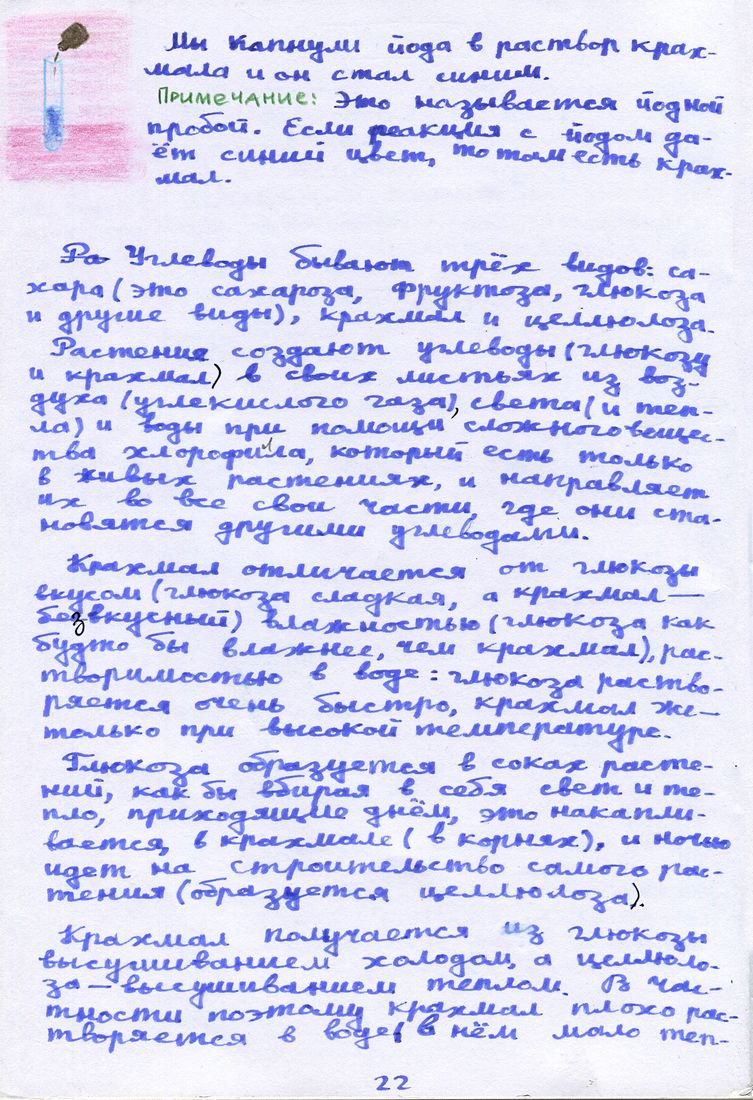 Мы капнули йода в раствор крах-
мала и он стал синим.
Примечание: Это называется йодной
пробой. Если реакция с йодом да-
ёт синий цвет, то там есть крах-
мал.
Ра Углеводы бывают трёх видов: са-
хара (это сахароза, фруктоза, глюкоза
и другие виды), крахмал и целлюлоза.
Растение создают углеводы (глюкозу
и крахмал) в своих листьях из воз-
духа (углекислого газа), света (и теп-
ла) и воды при помощи сложного вещес-
тва хлорофилла, который есть только
в живых растениях, и направляет
их во все свои части, где они ста-
новятся другими углеводами.
Крахмал отличается от глюкозы
вкусом (глюкоза сладкая, а крахмал —
безвкусный) влажностью (глюкоза как
будто бы влажнее, чем крахмал), рас-
творимостью в воде: глюкоза раство-
ряется очень быстро, крахмал же —
только при высокой температуре.
Глюкоза образуется в соках расте-
ний, как бы вбирая в себя свет и те-
пло, приходящие днём, это накапли-
вается, в крахмале (в корнях), и ночью
идет на строительство самого рас-
тения (образуется целлюлоза).
Крахмал получается из глюкозы
высушиванием холодом, а целлюло-
за — высушиванием теплом. В час-
тности поэтому крахмал плохо рас-
творяется в воде, в нём мало теп-
22